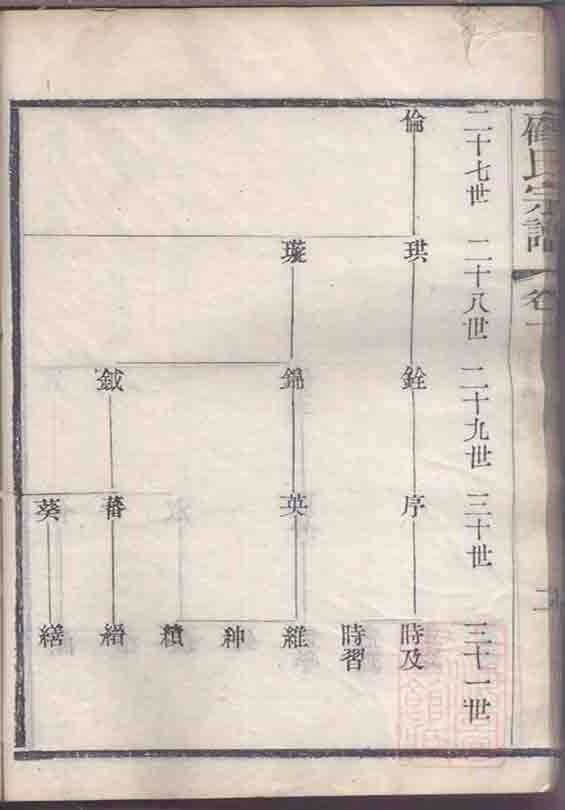 氏宗譜
卷一
二十七世 二十八世 二十九世 三十世 三十一世
倫 珙 銓 序 時及
時習
璇 錦 英 維
紳
績
鉞 蕃 縉
葵 繕